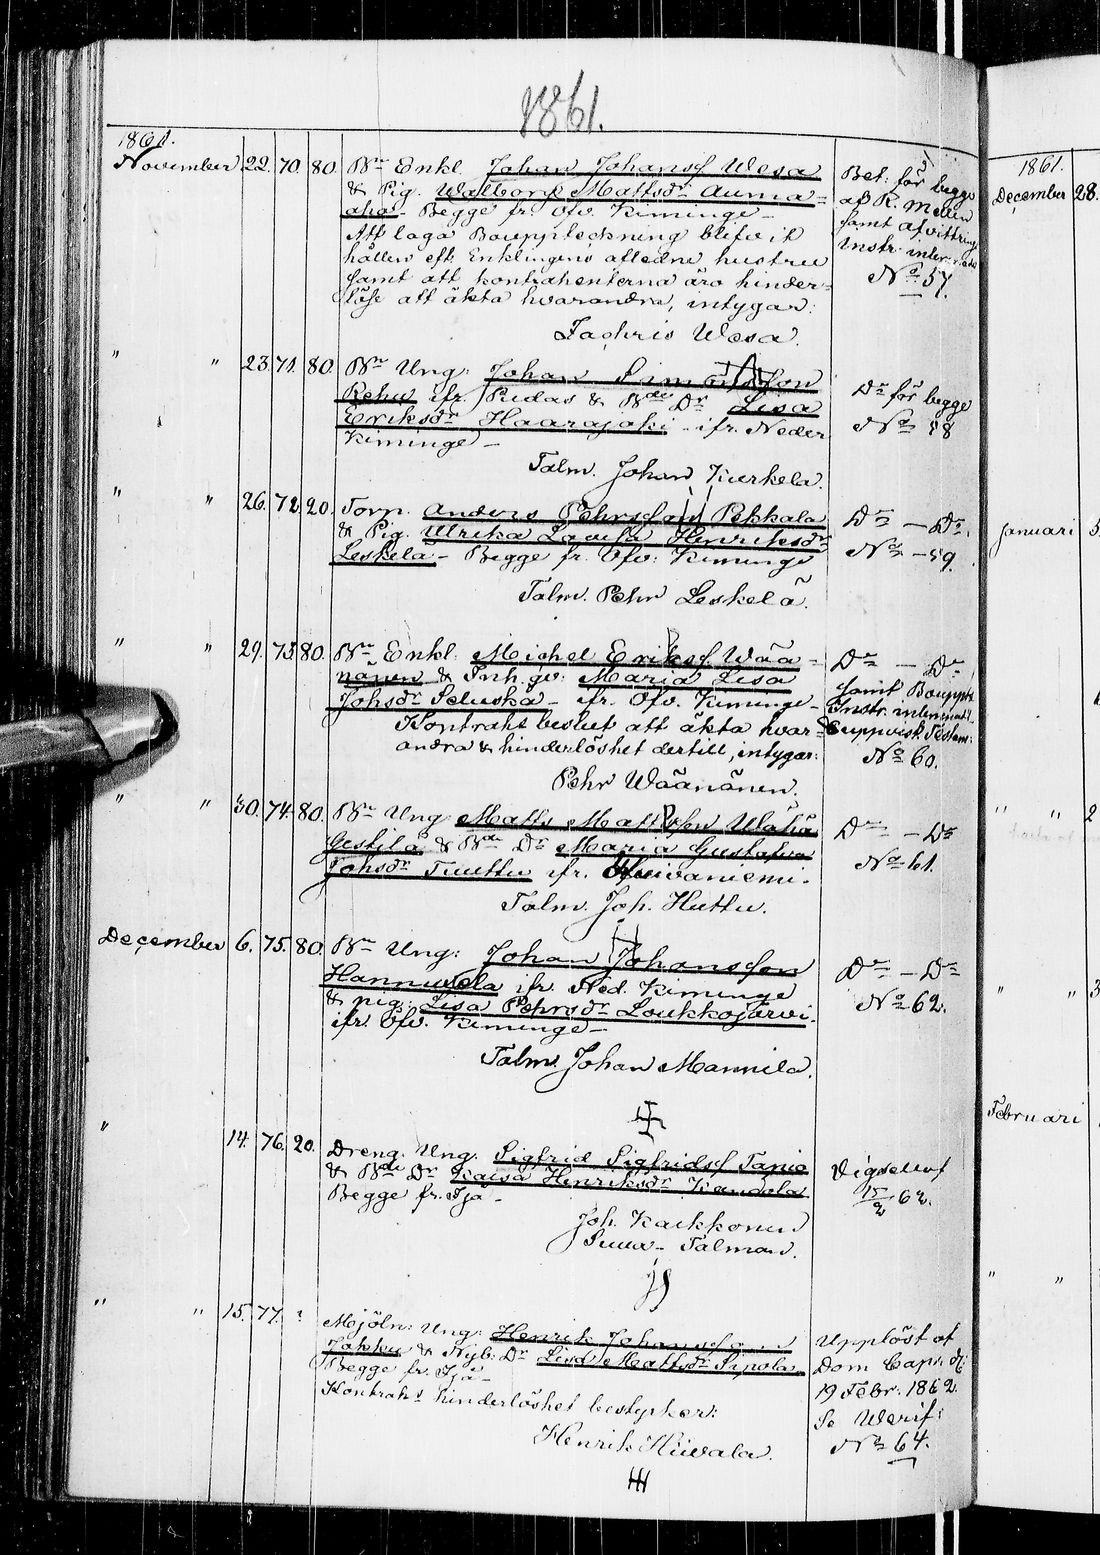 1861.
1861.
November 22. 70. 80. Bn Enkl. Johan Johansf Wesa
& Pig. Walborg Mattsdr Auma=
aho - Begge fr. Öfv. Kiminge -
Att laga Bouppteckning blifvit
hållen eft. Enklingens afledne hustru
samt att kontrahenterna äro hinder=
löse att äkta hvarandra, intygar:
Zachris Wesa.
Bet: för begge
af R. Mellin
samt Afvittrings
Instr.
No 57.
" " 23. 71. 80. Bn Ung: Johan Simonsson
Rehu ifr. & Bde Dr Lisa
Eriksdr Haarajoki - ifr. Neder
Kiminge -
Talm. Johan Kurkela.
Do för begge
No 58
" " 26. 72. 20. Torp. Anders Pehrsson Pekkala
& Pig. Ulrika Lovisa Henriksdr
Leskelä - Begge fr. Öfv: Kiminge
Talm. Pehr Leskelä.
Do - Do.
No - 59.
" " 29. 73. 80. Bn Enkl: Michel Eriksf. Wää=
nänen & Inh. gv: Maria Lisa
Johsdr Seluska - ifr. Öfv. Kiminge -
Kontraht beslut att äkta hvar=
andra & hinderlöshet dertill, intygar:
Pehr Wäänänen.
Do - Do
samt Bouppt.
Instr.
No 60.
" " 30. 74. 80. Bn Ung: Matts Mattsson
& Bde Dr Maria Gustafva
Johsdr Tuuttu ifr.
Talm. Joh. Huttu.
Do - Do
No 61.
December 6. 75. 80. Bn Ung: Johan Johansson
Hannuzela ifr. Ned. Kiminge
& pig: Lisa Pehrsdr Loukkojärvi.
ifr. Öfv. Kiminge -
Talm. Johan Mannila.
Do - Do
No 62.
" 14. 76. 20. Dreng. Ung. Sigfrid Sigfridsf Tapio
& Bde Dr Kaisa Henriksdr Kandela
Begge fr. Ijå -
Joh. Kaikkonen
Talman.
Vigde
15/2 62.
" " 15. 77. Mjöln: Ung: Henrik Johansson
Jokku & Nyb: Dr Lisa Mattsdr Sipola
Begge fr. Ijå -
Kontrahs hinderlöshet bestyrker:
Henrik Hiivala.
Upplöst af
Dom Cap:
19 Febr: 1862.
Se Verif:
No 64.
1861.
December 28.
Januari 5
" " 2
" " 3
Februari
" "